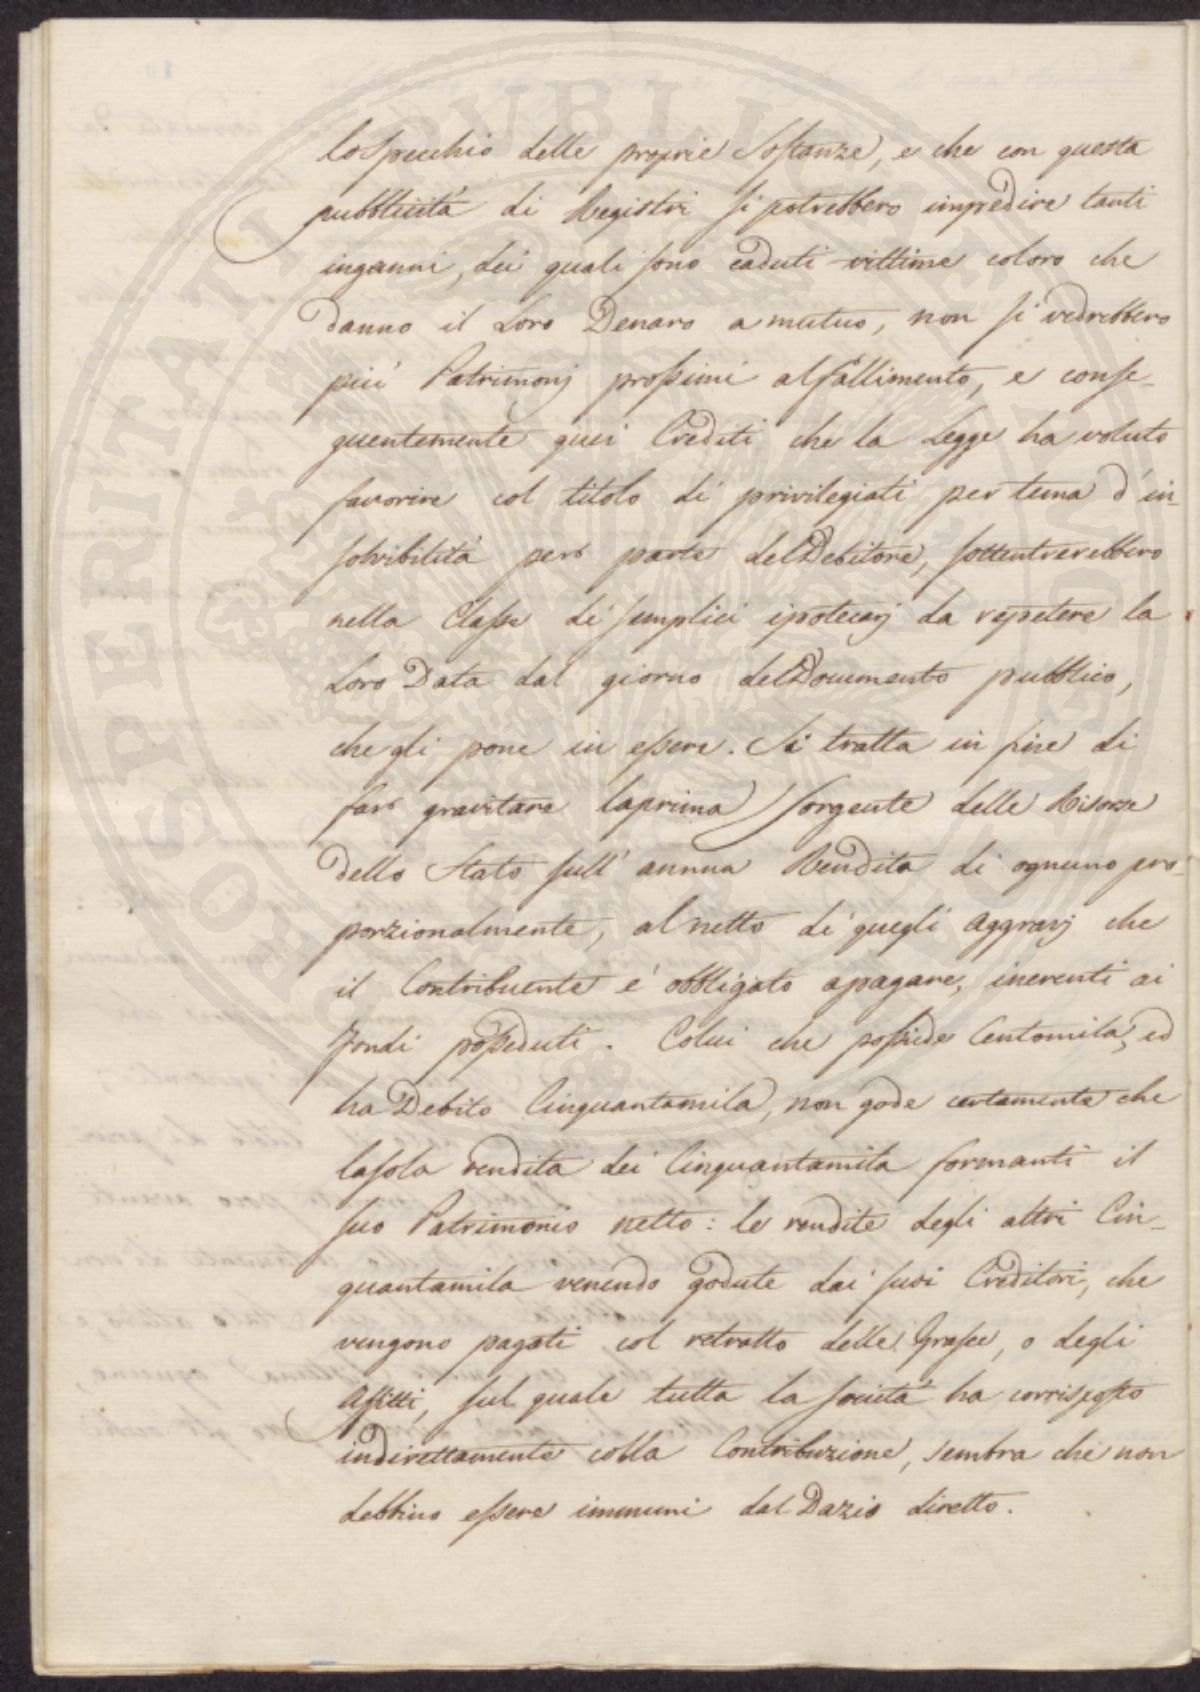 lo Specchio delle proprie Sostanze, e che con questa
pubblicità di Registri si potrebbero impedire tanti
inganni, dei quali sono caduti vittime coloro che
danno il Loro Denaro a mutuo, non si vedrebbero
più Patrimonj prossimi al fallimento, e conse-
guentemente quei Crediti che la Legge ha voluto
favorire col titolo di privilegiati per tema d'in-
solvibilità per parte del Debitore, sottentrerebbero
nella Classe di semplici ipotecarj da repetere la
Loro Data dal giorno del Documento pubblico,
che gli pone in essere. Si tratta in fine di
far gravitare la prima Sorgente delle Risorse
dello Stato sull'annua Rendita di ognuno pro-
porzionalmente, al netto di quegli aggravj che
il Contribuente è obbligato a pagare, inerenti ai
Fondi posseduti. Colui che possiede Centomila, ed
ha Debito Cinquantamila, non gode certamente che
la sola rendita dei Cinquantamila formanti il
suo Patrimonio netto: le rendite degli altri Cin-
quantamila venendo godute dai suoi Creditori, che
vengono pagati col retratto delle Grasce, o degli
Affitti, sul quale tutta la società ha corrisposto
indirettamente colla Contribuzione, sembra che non
debbino essere immuni dal Dazio diretto.
PROSPERITATI PUBLICAE